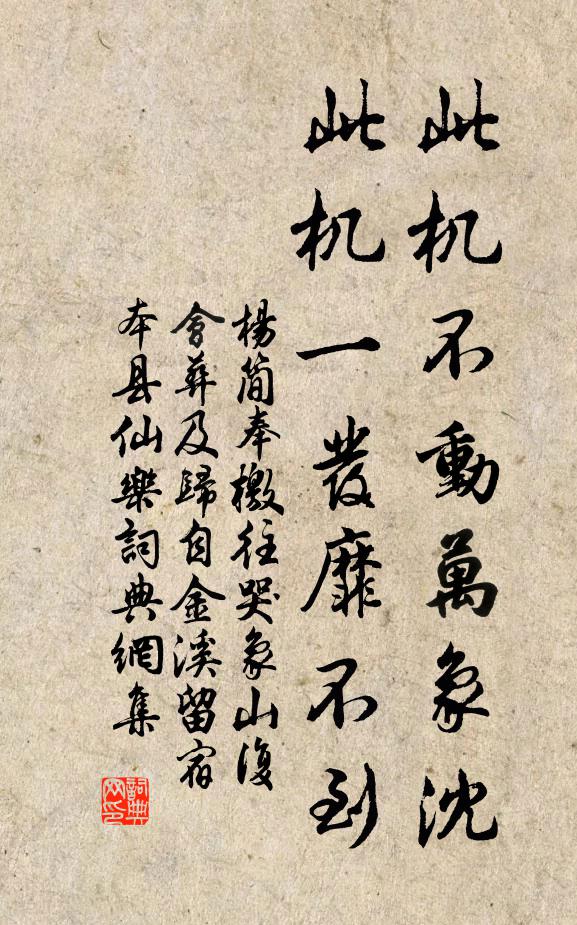 此机不動萬象沈
此机一發靡不到
楊简奉檄往哭象山復
會葬及歸自金溪留宿
本县仙樂詞典網集
詞典
网印